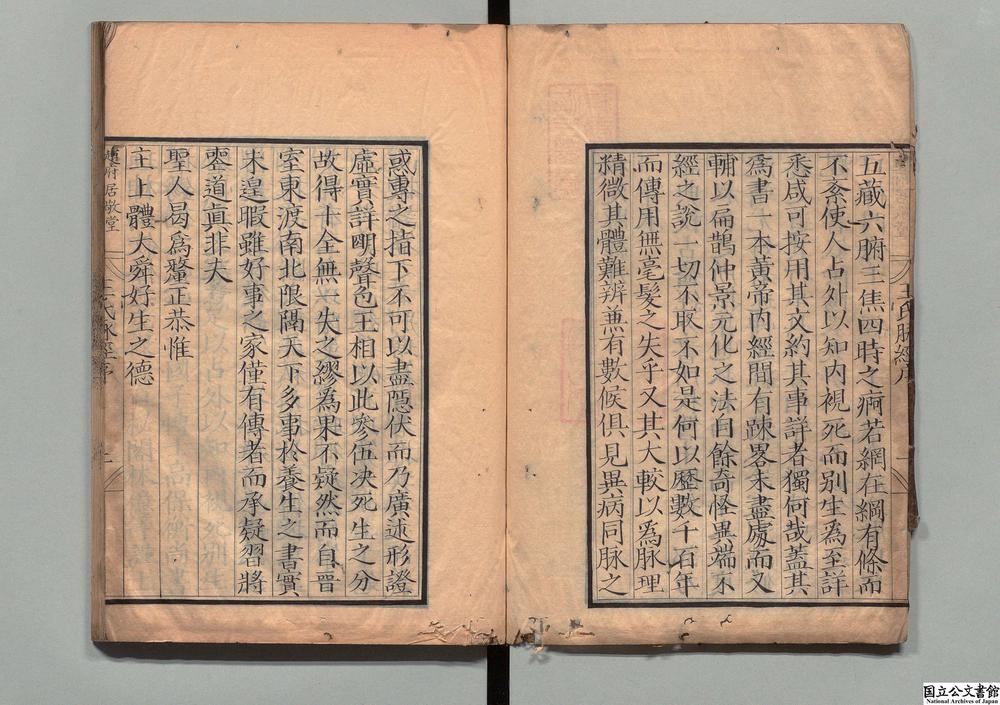 五藏六腑三焦四時之痾若網在綱有條而
不紊使人占外以知內視死而別生爲至詳
悉咸可按用其文約其事詳者獨何哉蓋其
爲書一本黃帝內經間有踈畧未盡處而又
輔以扁鵲仲景元化之法自餘奇怪異端不
經之說一切不取不如是何以歷數千百年
而傳用無毫髮之失乎又其大較以爲脉理
精微其體難辨兼有數候俱見異病同脉之
王氏脉經序
惑專之指下不可以盡隱伏而乃廣述形證
虛實詳明聲色王相以此參伍决死生之分
故得十全無一失之繆爲果不疑然而自晉
室東渡南北限隔天下多事於養生之書實
未遑暇雖好事之家僅有傳者而承疑習將
喪道眞非夫
聖人曷爲釐正恭惟
主上體大舜好生之德
趙府居敬堂
王氏脉經序
国立公文書館
National Archives of Japan